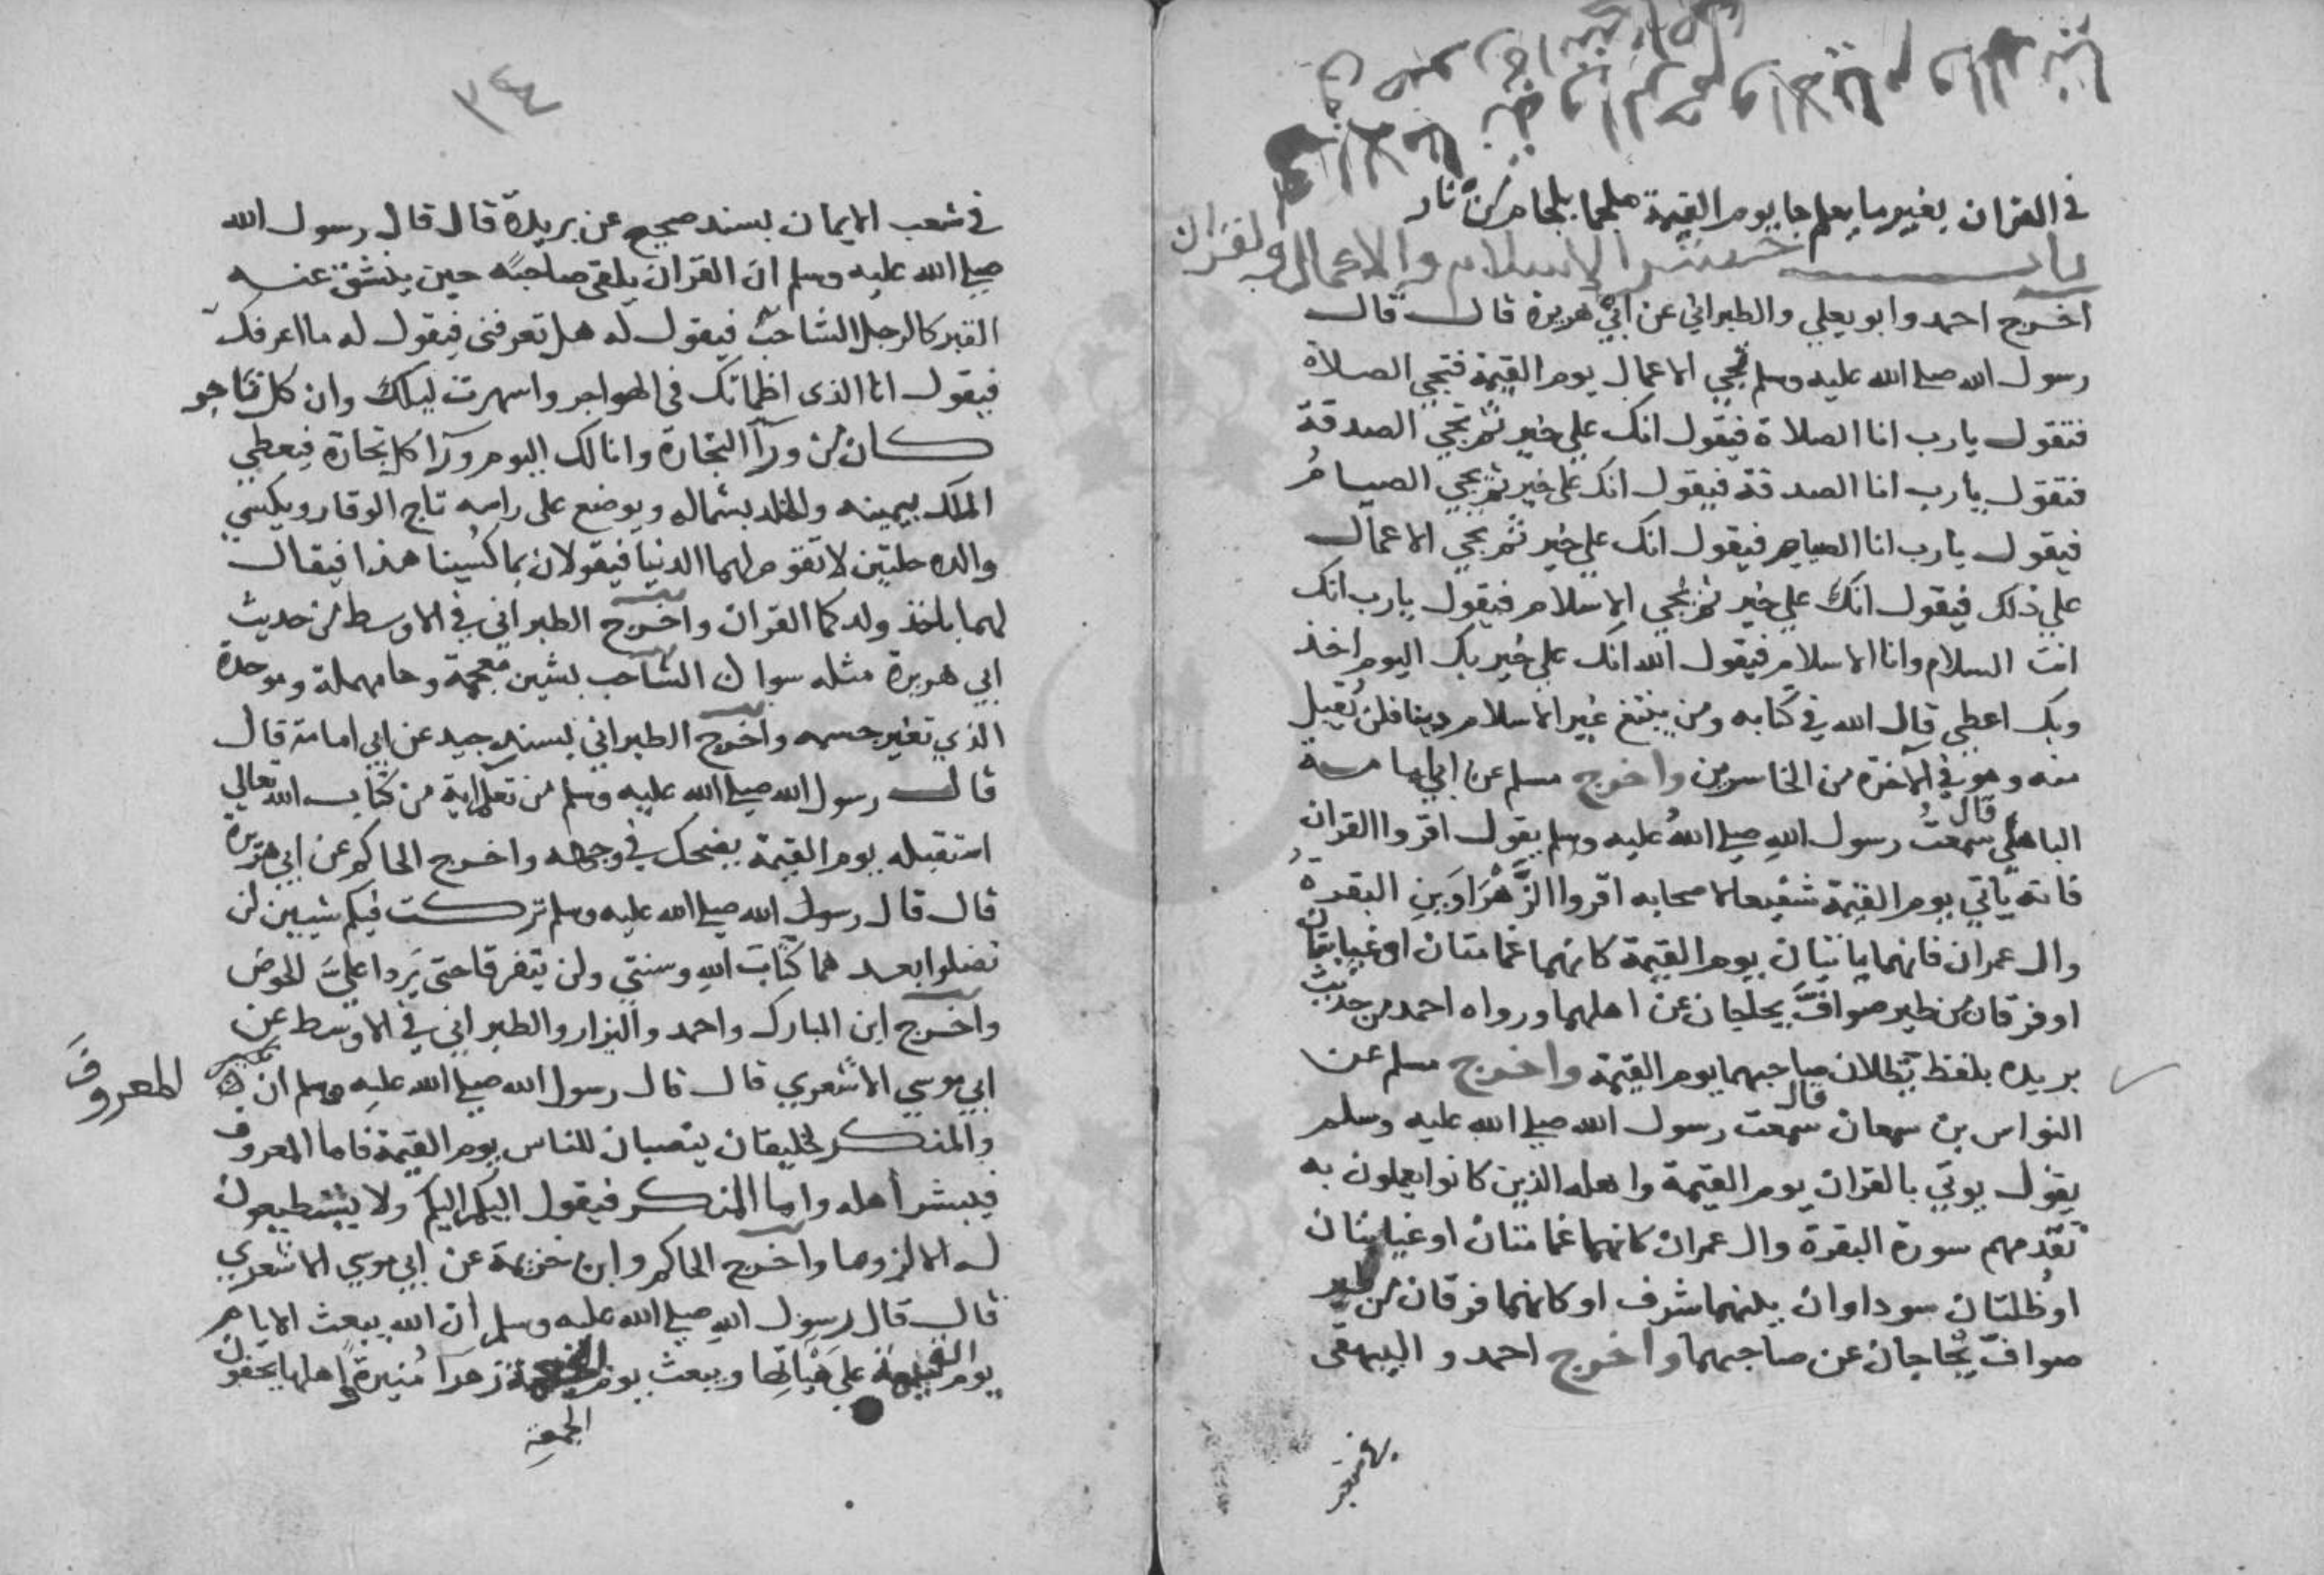 في القران بغير ما يعلم جا يوم القيمة ملجما بلجام من نار
باب حشر الاسلام والاعمال والقران
اخرج احمد وابو يعلي والطبراني عن ابي هريرة قال قال
رسول الله صلي الله عليه وسلم تجي الاعمال يوم القيمة فتجي الصلاة
فتقول يارب انا الصلاة فيقول انك علي خير ثم تجي الصدقة
فتقول يارب انا الصدقة فيقول انك علي خير ثم يجي الصيام
فيقول يارب انا الصيام فيقول انك علي خير ثم تجي الاعمال
علي ذلك فيقول انك علي خير ثم يجي الاسلام فيقول يارب انك
انت السلام وانا الاسلام فيقول الله انك علي خير بك اليوم اخذ
وبك اعطي قال الله في كتابه ومن يبتغ غير الاسلام دينا فلن يقبل
منه وهو في الاخرة من الخاسرين واخرج مسلم عن ابي امامة
الباهلي قال سمعت رسول الله صلي الله عليه وسلم يقول اقروا القران
فانه ياتي يوم القيمة شفيعا لاصحابه اقروا الزهراوين البقرة
وال عمران فانهما ياتيان يوم القيمة كانهما غمامتان او غيابتان
او فرقان من طير صواف يحاجان عن اهلهما ورواه احمد من حديث
بريده بلفظ تظلان صاحبهما يوم القيمة واخرج مسلم عن
النواس بن سمعان قال سمعت رسول الله صلي الله عليه وسلم
يقول يوتي بالقران يوم القيمة واهله الذين كانوا يعملون به
تقدمهم سورة البقرة وال عمران كانهما غمامتان او غيابتان
او ظلتان سوداوان بينهما شرف او كانهما فرقان من طير
صواف يحاجان عن صاحبهما واخرج احمد والبيهقي
في شعب
في شعب الايمان بسند صحيح عن بريدة قال قال رسول الله
صلي الله عليه وسلم ان القران يلقي صاحبه حين ينشق عنه
القبر كالرجل الشاحب فيقول له هل تعرفني فيقول له ما اعرفك
فيقول انا الذي اظماتك في الهواجر واسهرت ليلك وان كل تاجر
كان من ورآ التجارة وانا لك اليوم ورآ كل تجارة فيعطي
الملك بيمينه والخلد بشماله ويوضع علي راسه تاج الوقار ويكسي
والده حلتين لا تقوم لهما الدنيا فيقولان بما كسينا هذا فيقال
لهما باخذ ولدكما القران واخرج الطبراني في الاوسط من حديث
ابي هريرة مثله سوا ن الشاحب بشين معجمة وحا مهملة وموحدة
الذي تغير جسمه واخرج الطبراني بسند جيد عن ابي امامة قال
قال رسول الله صلي الله عليه وسلم من تعلم اية من كتاب الله تعالي
استقبلته يوم القيمة يضحك في وجهه واخرج الحاكم عن ابي هريرة
قال قال رسول الله صلي الله عليه وسلم تركت فيكم شيين لن
تضلوا بعد هما كتاب الله وسنتي ولن يتفرقا حتي يردا علي الحوض
واخرج ابن المبارك واحمد والبزار والطبراني في الاوسط عن
ابي موسي الاشعري قال قال رسول الله صلي الله عليه وسلم ان المعروف
والمنكر لخليقتان ينصبان للناس يوم القيمة فاما المعروف
فيبشر اهله واما المنكر فيقول اليكم اليكم ولا يستطيعون
له الا لزوما واخرج الحاكم وابن خزيمة عن ابي موسي الاشعري
قال قال رسول الله صلي الله عليه وسلم ان الله يبعث الايام
يوم القيمة علي هياتها ويبعث يوم الجمعة زهرا منيرة اهلها يحفون
الجمعة